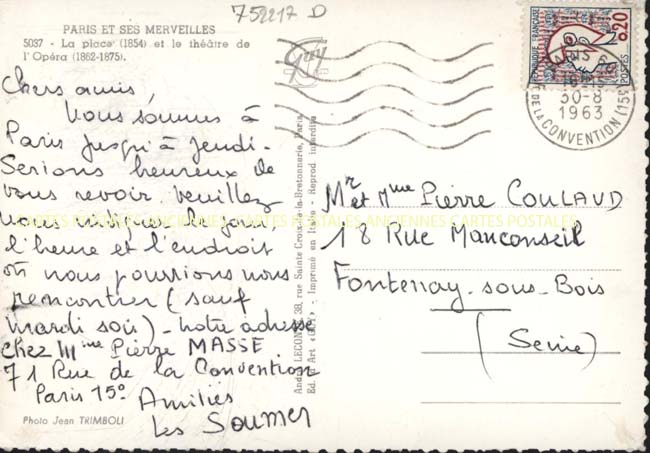 752217 D
PARIS ET SES MERVEILLES
5037 - La place (1854) et le théâtre de
l'Opéra (1862-1875).
Chers amis,
Nous sommes à
Paris jusqu'à jeudi.
Serions heureux de
vous revoir. Veuillez
nous indiquer le jour
l'heure et l'endroit
où nous pourrions nous
rencontrer (sauf
mardi soir) - notre adresse
chez Mme Pierre MASSE
71 Rue de la Convention
Paris 15°
Amitiés
Les
Photo Jean TRIMBOLI
Guy
André LECONTE, 38, rue Sainte-Croix-de-la-Bretonnerie, Paris
Ed. d'Art «GUY» - Imprimé en Italie - Reprod. interdite
REPUBLIQUE FRANÇAISE
0,20
POSTES
PARIS
30-8
1963
R. DE LA CONVENTION (15e)
Mr et Mme Pierre COULAUD
18 Rue Mauconseil
Fontenay-sous-Bois
(Seine)
CARTES POSTALES ANCIENNES CARTES POSTALES ANCIENNES CARTES POSTALES